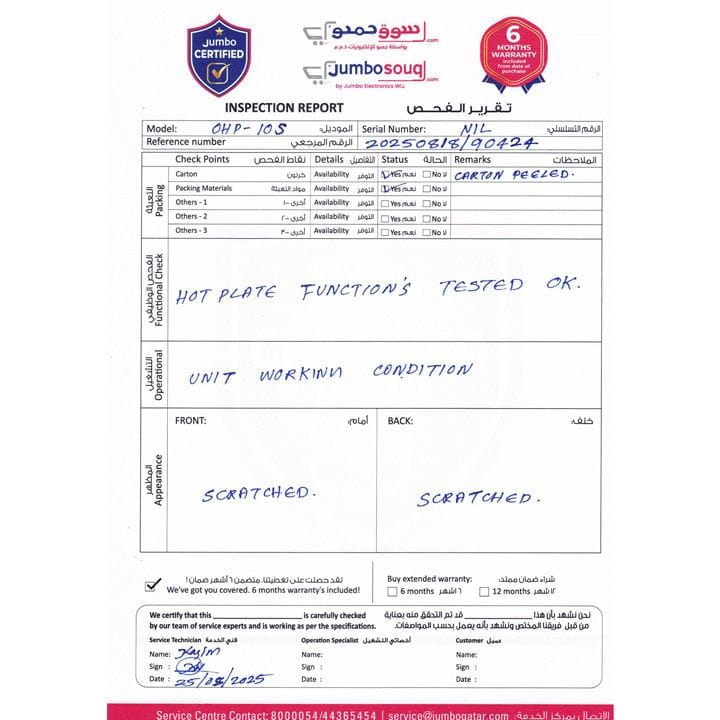 Jumbo
CERTIFIED
سوق جمبو
.com
بواسطة جمبو للإلكترونيات ذ.م.م
jumbosouq
.com
by Jumbo Electronics WLL
6
MONTHS
WARRANTY
included
from date of
purchase
INSPECTION REPORT تقرير الفحص
Model: OHP-105 الموديل: Serial Number: NIL الرقم التسلسلي:
Reference number الرقم المرجعي 20250818/90424
Check Points نقاط الفحص Details التفاصيل Status الحالة Remarks الملاحظات
التعبئة Packing
Carton كرتون Availability التوفر Yes نعم No لا CARTON PEELED.
Packing Materials مواد التعبئة Availability التوفر Yes نعم No لا
Others - 1 أخرى -١ Availability التوفر Yes نعم No لا
Others - 2 أخرى -٢ Availability التوفر Yes نعم No لا
Others - 3 أخرى -٣ Availability التوفر Yes نعم No لا
الفحص الوظيفي Functional Check
HOT PLATE FUNCTION'S TESTED OK.
التشغيل Operational
UNIT WORKINN CONDITION
المظهر Appearance
FRONT: أمام: BACK: خلف:
SCRATCHED. SCRATCHED.
لقد حصلت على تغطيتنا. متضمن ٦ أشهر ضمان!
We've got you covered. 6 months warranty's included!
Buy extended warranty: شراء ضمان ممتد:
6 months ٦ أشهر 12 months ١٢ شهر
We certify that this is carefully checked
by our team of service experts and is working as per the specifications.
نحن نشهد بأن هذا قد تم التحقق منه بعناية
من قبل فريقنا المختص ونشهد بأنه يعمل بحسب المواصفات.
Service Technician فني الخدمة Operation Specialist أخصائي التشغيل Customer عميل
Name: Kazim Name: Name:
Sign : Sign : Sign :
Date : 25/08/2025 Date : Date :
Service Centre Contact: 8000054/44365454 | service@jumboqatar.com الاتصال بمركز الخدمة: